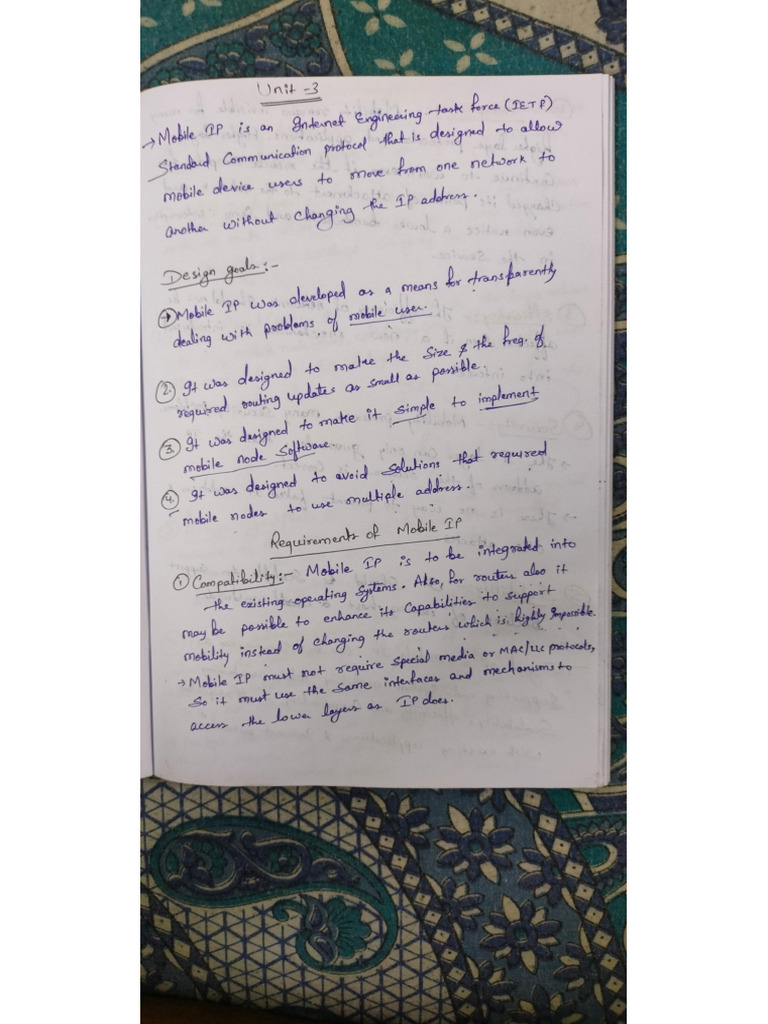 Unit-3
→ Mobile IP is an Internet Engineering task force (IETF)
Standard Communication protocol that is designed to allow
mobile device users to move from one network to
another without changing the IP address.
Design goals:-
① Mobile IP was developed as a means for transparently
dealing with problems of mobile user.
② It was designed to make the size & the freq. of
required routing updates as small as possible.
③ It was designed to make it simple to implement
mobile node Software.
④ It was designed to avoid solutions that required
mobile nodes to use multiple address.
Requirements of Mobile IP
① Compatibility:- Mobile IP is to be integrated into
the existing operating Systems. Also, for routers also it
may be possible to enhance its capabilities to support
mobility instead of changing the routers which is highly impossible.
→ Mobile IP must not require special media or MAC/LLC protocols,
So it must use the same interfaces and mechanisms to
access the lower layers as IP does.